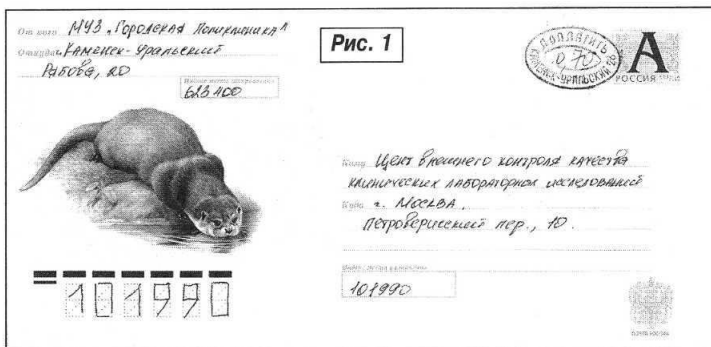 От кого МУЗ „Городская Поликлиника"
Откуда г. Каменск-Уральский
Рябова, 20
623400
Рис. 1
ДОПЛАТИТЬ
0,70
КАМЕНСК-УРАЛЬСКИЙ 26
А
РОССИЯ
Кому Цент внешнего контроля качества
клинических лабораторных исследований
Куда г. Москва.
Петроверигский пер., 10.
101990
101990
ПОЧТА РОССИИ